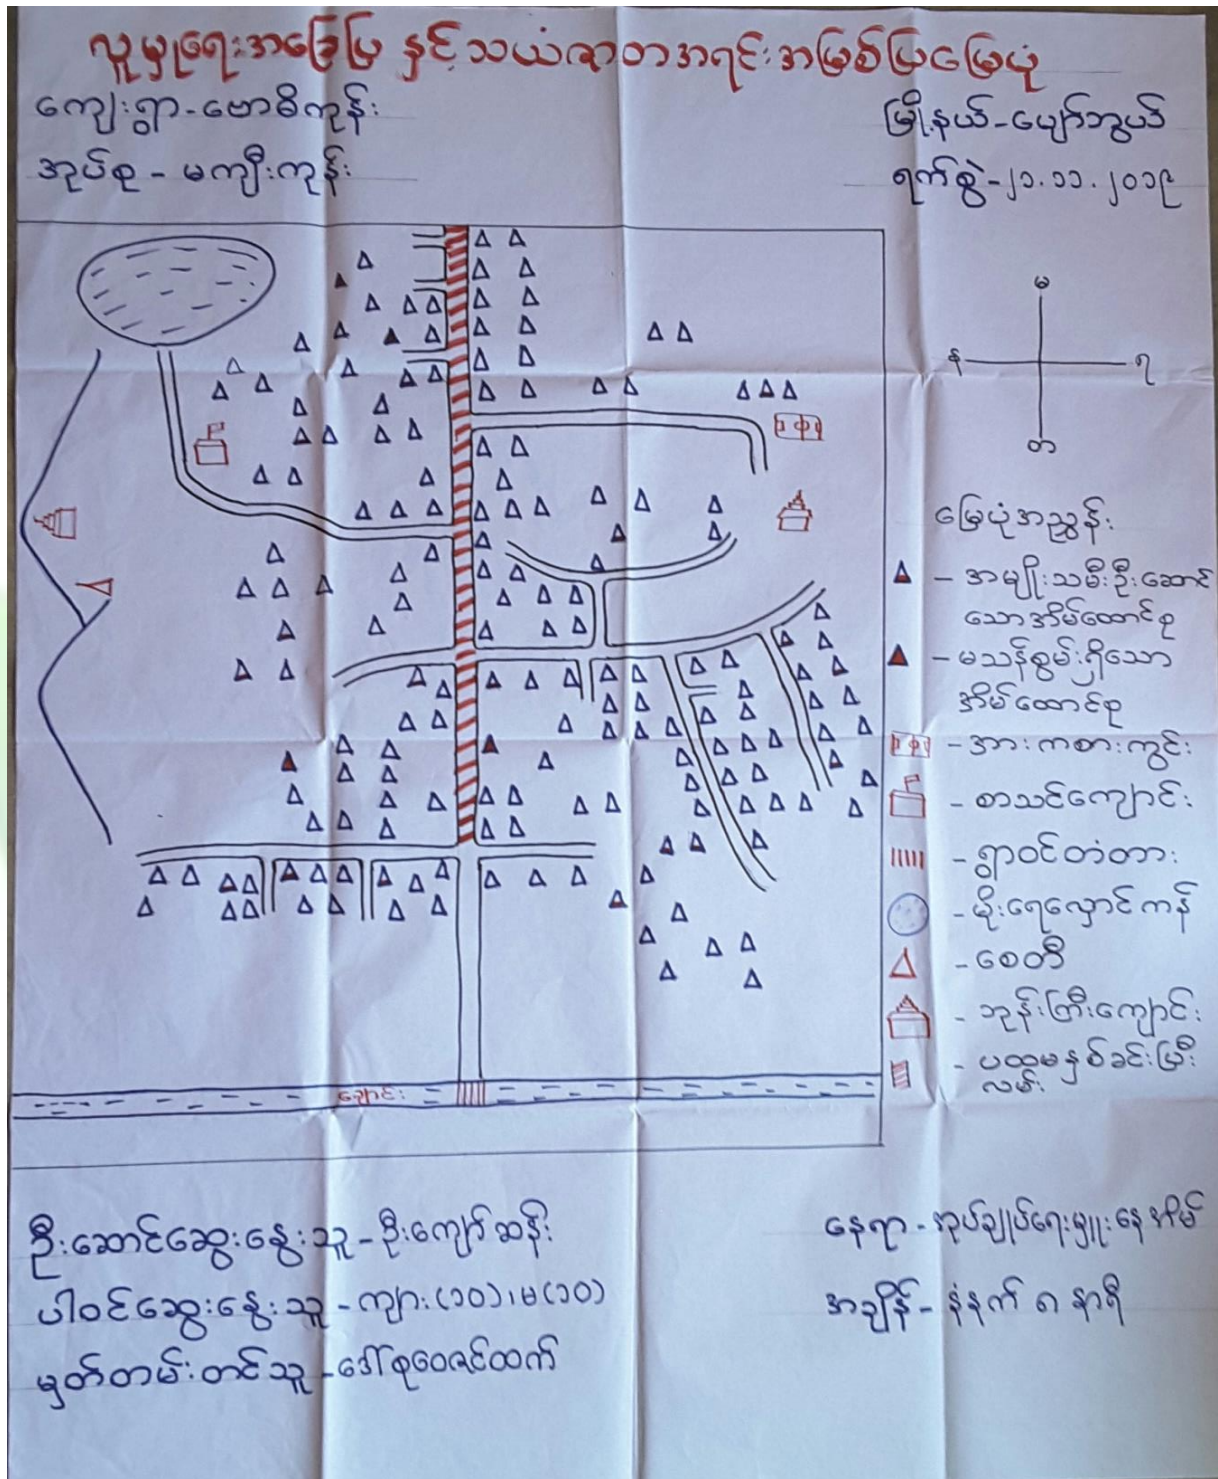 လူမှုရေးအခြေပြ နှင့် သယံဇာတအရင်းအမြစ်ပြမြေပုံ
ကျေးရွာ-ဗောဓိကုန်း
အုပ်စု - မကျီးကုန်း
မြို့နယ်-ပျော်ဘွယ်
ရက်စွဲ-၂၁.၁၁.၂၀၁၉
မ
န
ရ
တ
မြေပုံအညွှန်း
- အမျိုးသမီးဦးဆောင်
သောအိမ်ထောင်စု
- မသန်စွမ်းရှိသော
အိမ်ထောင်စု
- အားကစားကွင်း
- စာသင်ကျောင်း
- ရွာဝင်တံတား
- မိုးရေလှောင်ကန်
- စေတီ
- ဘုန်းကြီးကျောင်း
- ပထမနှစ်ခင်းပြီး
လမ်း
ချောင်း
ဦးဆောင်ဆွေးနွေးသူ - ဦးကျော်ဆန်း
ပါဝင်ဆွေးနွေးသူ - ကျား(၁၀)၊မ(၁၀)
မှတ်တမ်းတင်သူ - ဒေါ်စုဝေဇင်ထက်
နေရာ - အုပ်ချုပ်ရေးမှူးနေအိမ်
အချိန် - နံနက် ၈ နာရီ